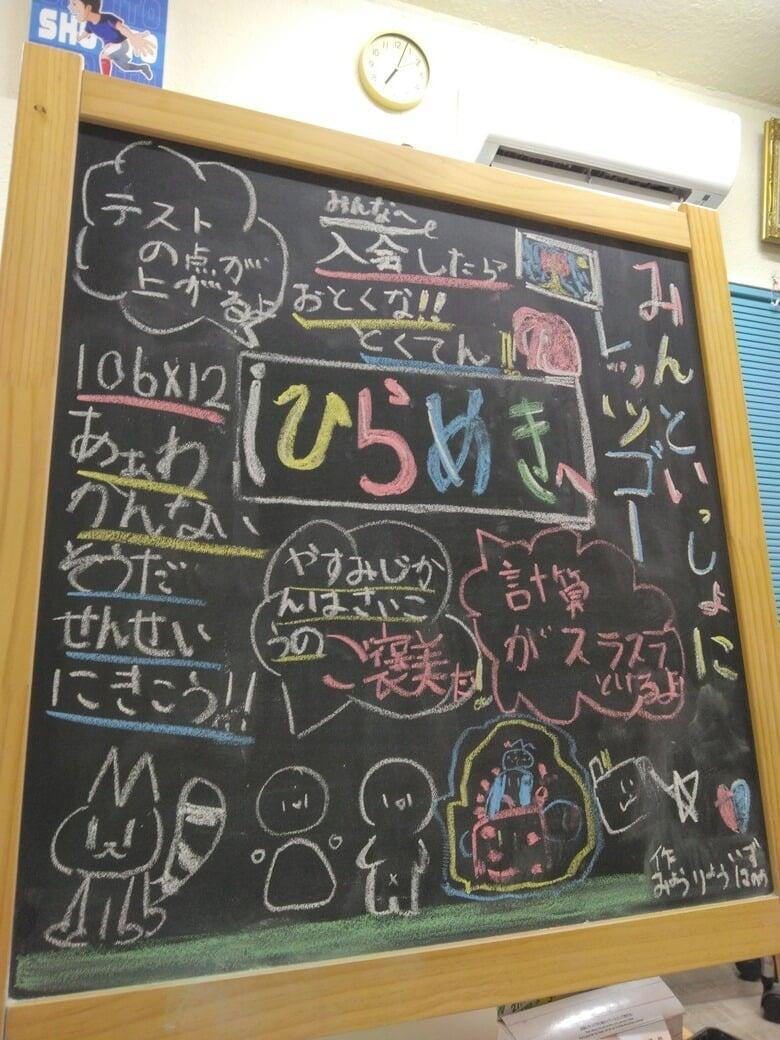 テスト
の点が
上がるよ
みんなへ
入会したら?
おとくな!!
とくてん!!
ひらめきへ
106×12
あぁわ
かんない
そうだ
せんせい
にきこう!!
やすみじか
んはさいこ
うの
ご褒美だ!
計算
がスラスラ
とけるよ
みんといっしょに
レッツゴー
作